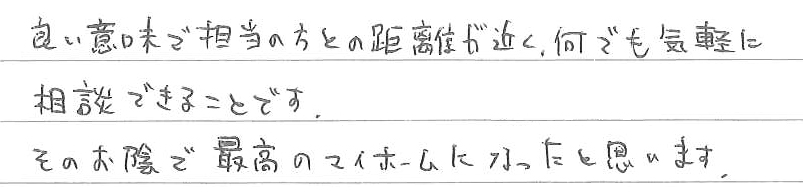 良い意味で担当の方との距離が近く、何でも気軽に
相談できることです。
そのお陰で最高のマイホームになったと思います。